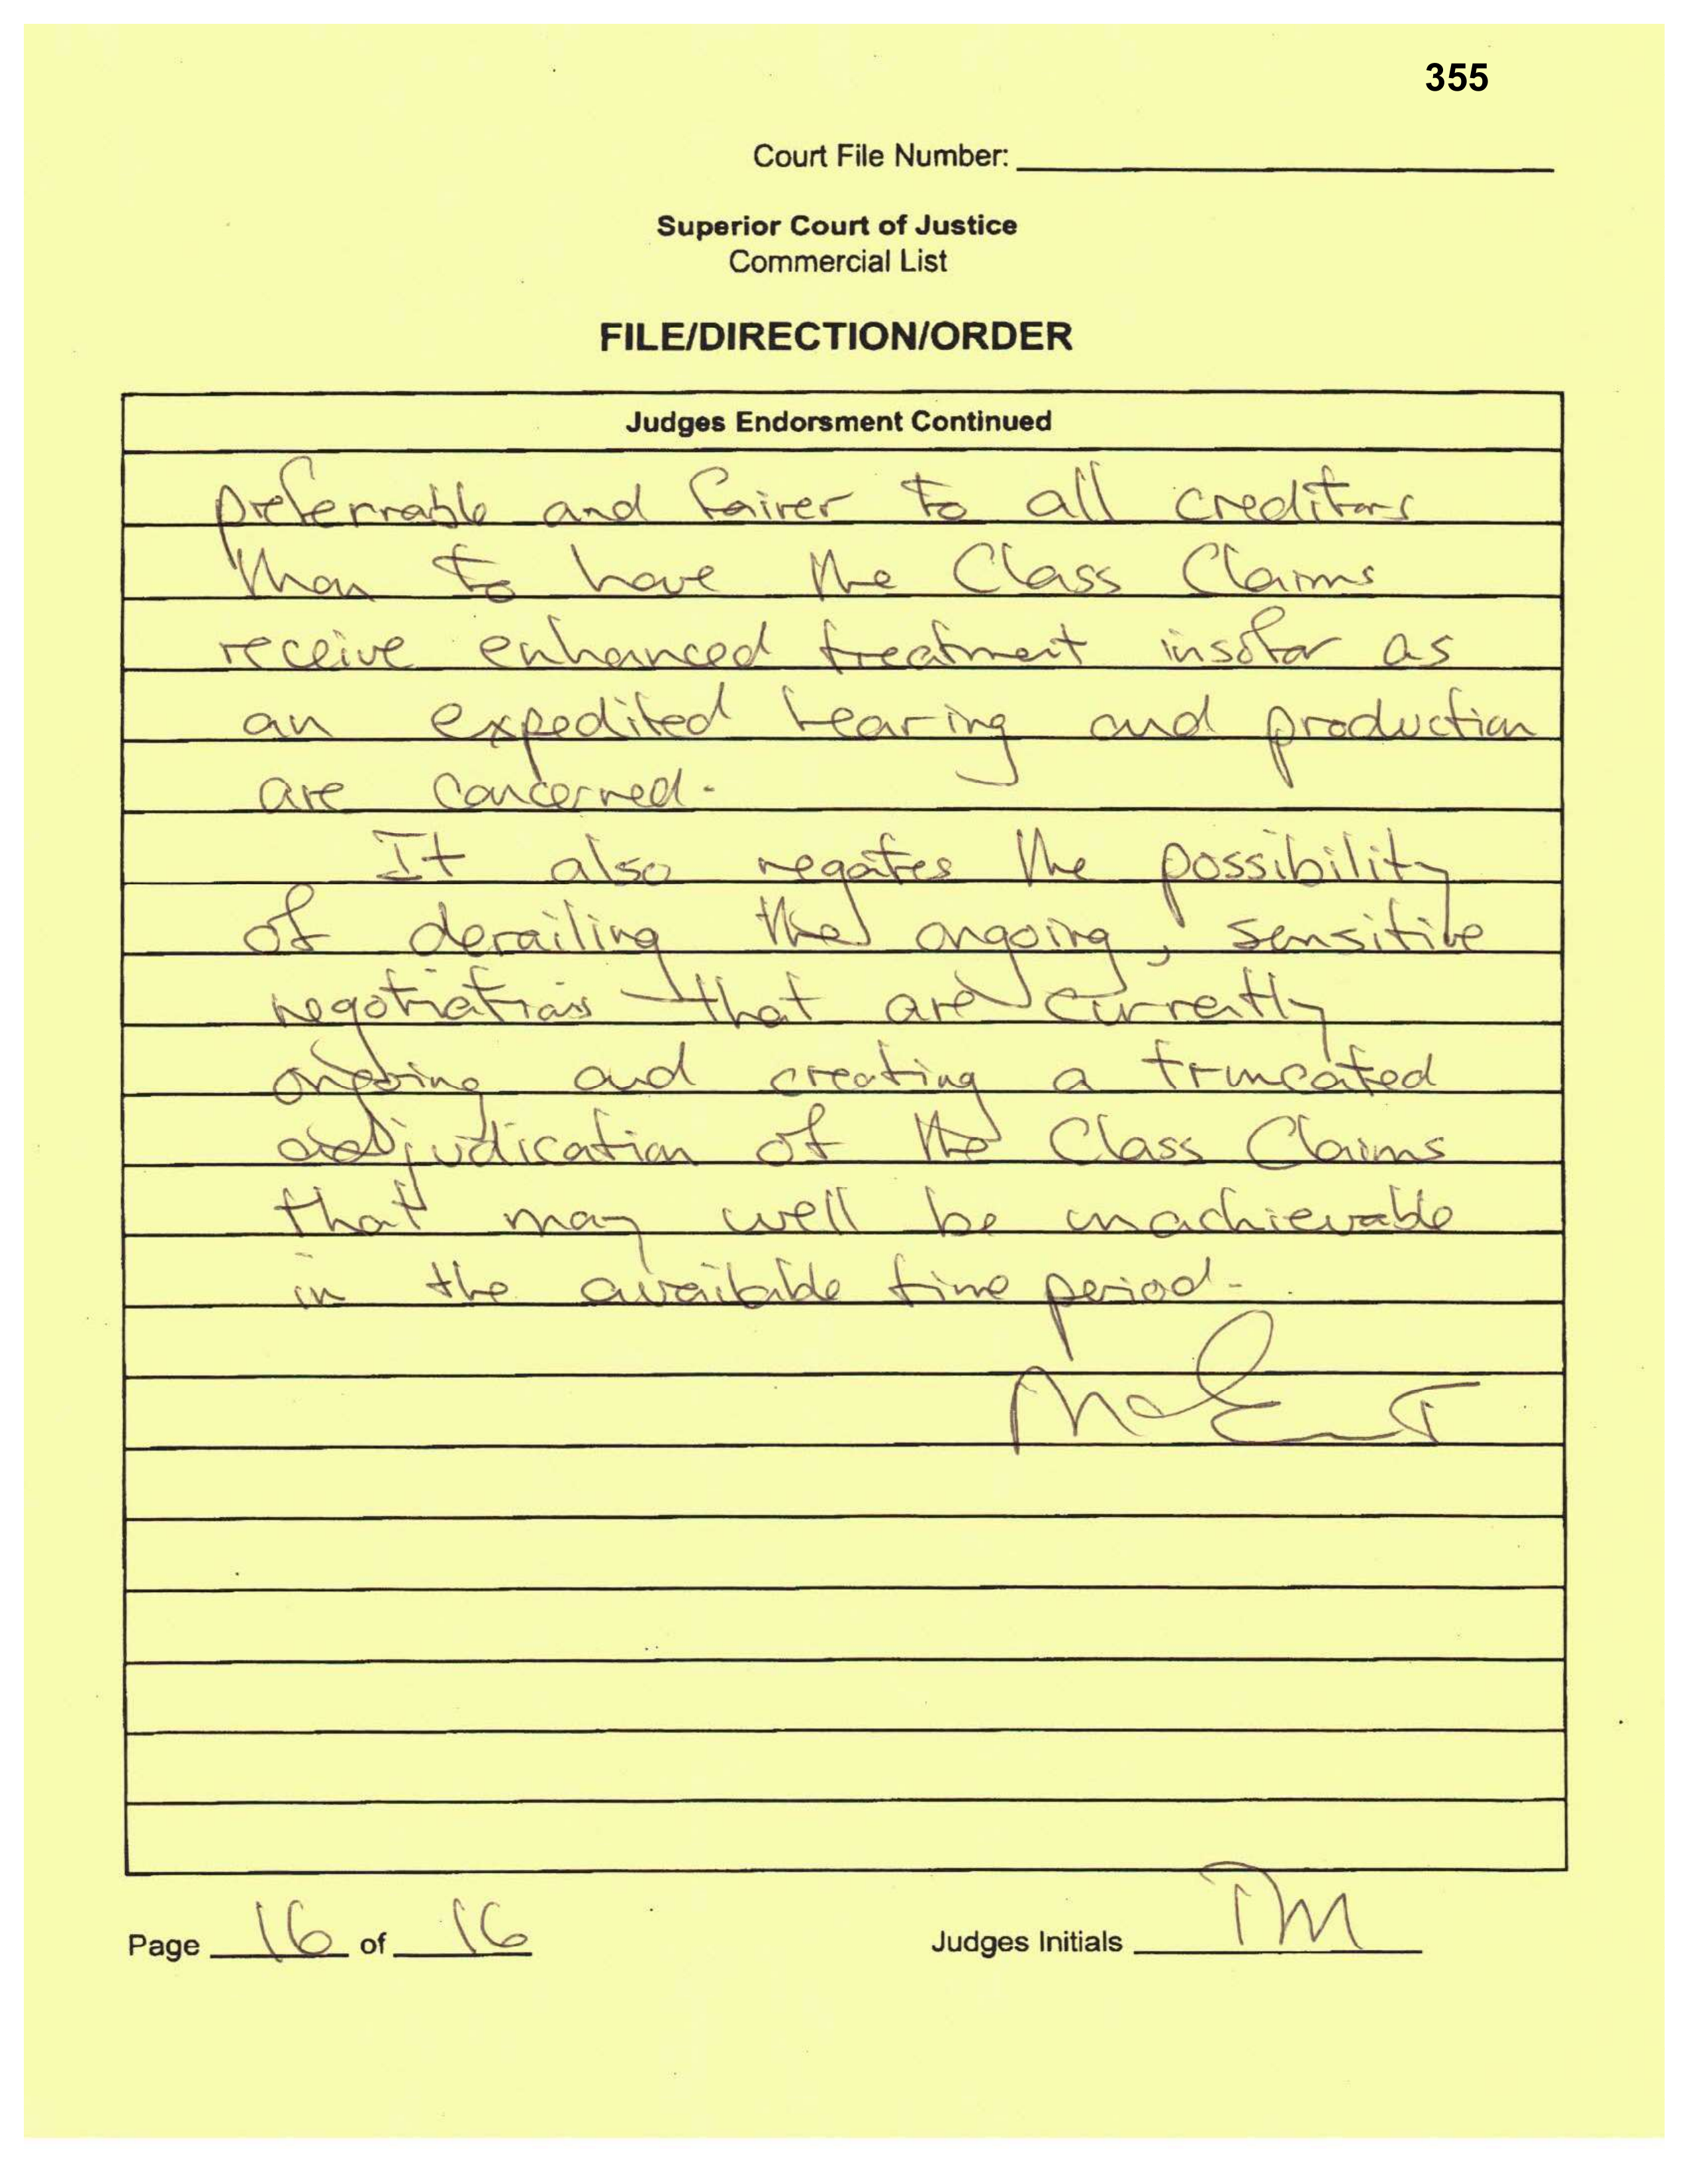 355
Court File Number:
Superior Court of Justice
Commercial List
FILE/DIRECTION/ORDER
Judges Endorsment Continued
preferrable and fairer to all creditors
than to have the Class Claims
receive enhanced treatment insofar as
an expedited hearing and production
are concerned.
It also negates the possibility
of derailing the ongoing, sensitive
negotiations that are currently
ongoing and creating a truncated
adjudication of the Class Claims
that may well be unachievable
in the available time period.
Page 16 of 16
Judges Initials TM